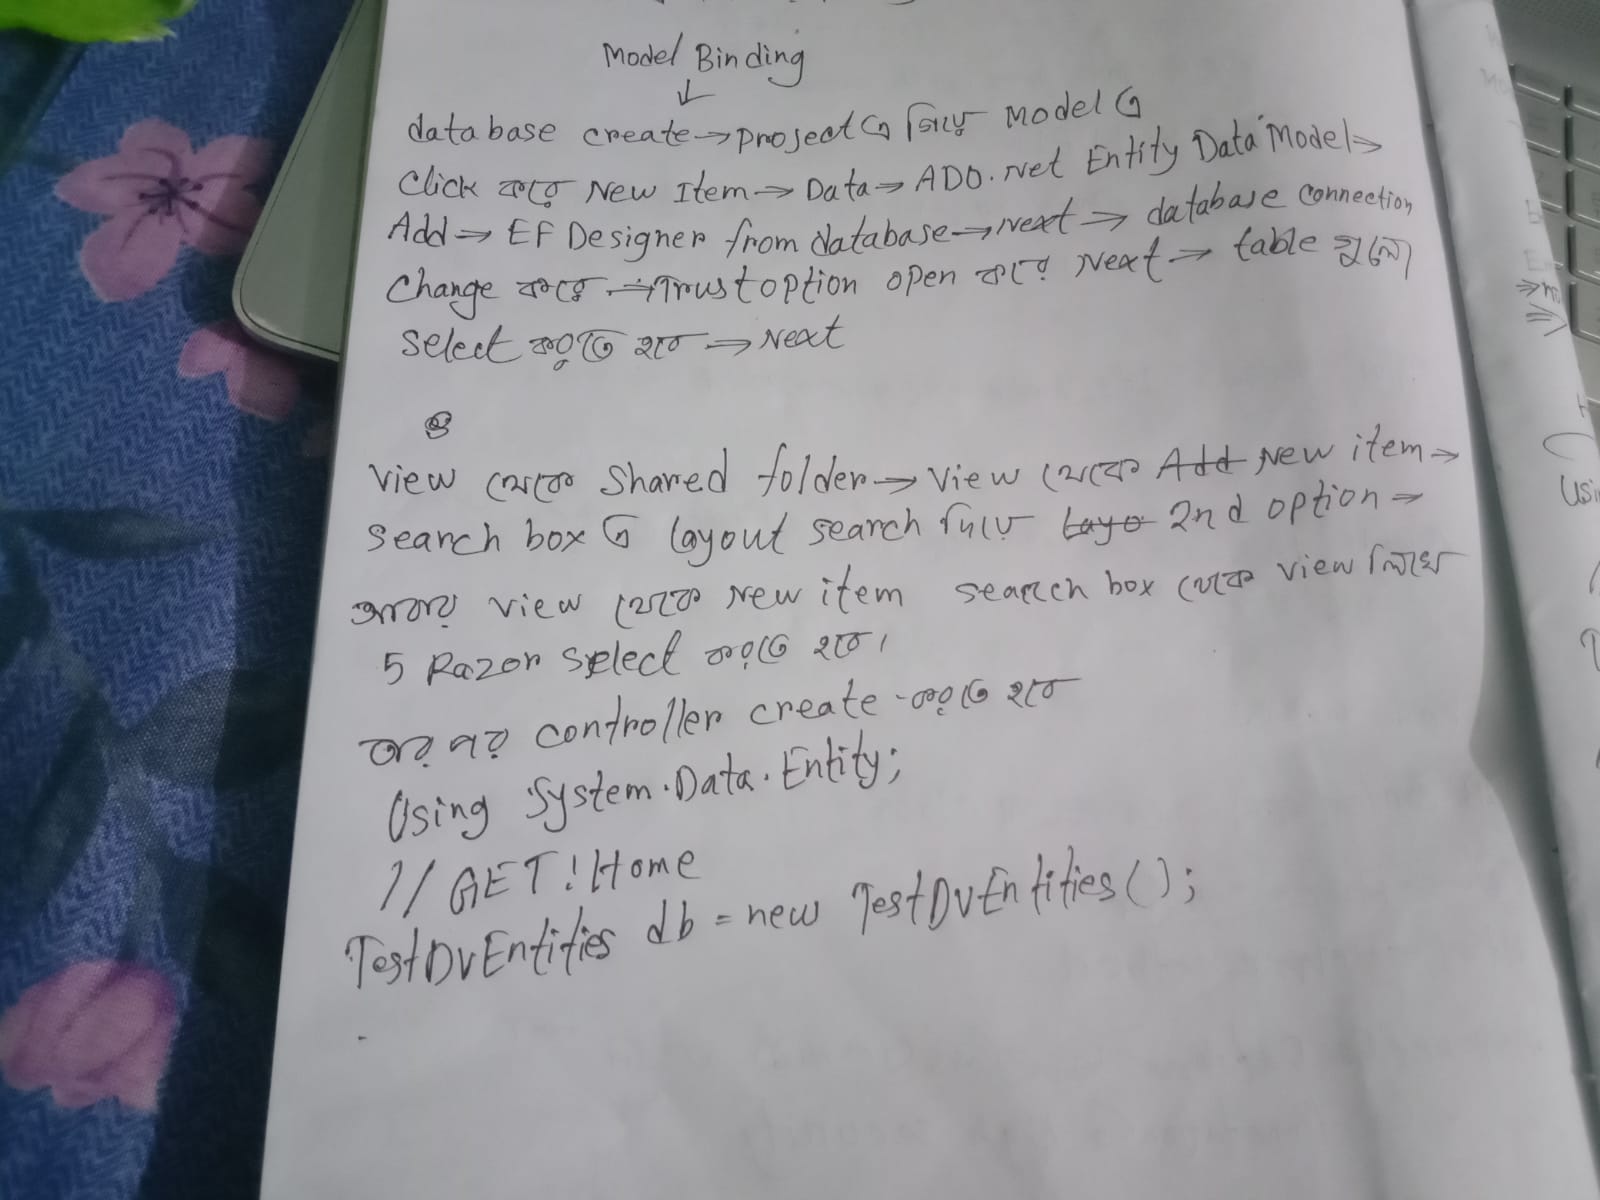 Model Binding
↓
database create → project এ গিয়ে Model এ
Click করে New Item → Data → ADO.Net Entity Data Model →
Add → EF Designer from database → Next → database connection
Change করে → Trust option open করে Next → table গুলো
Select করতে হবে → Next
View থেকে Shared folder → View থেকে Add New item →
Search box এ layout search দিয়ে Layo 2nd option →
আবার view থেকে New item search box থেকে view লিখে
5 Razor select করতে হবে।
তার পর controller create করতে হবে
Using System.Data.Entity;
// GET: Home
TestDvEntities db = new TestDvEntities();
Usi